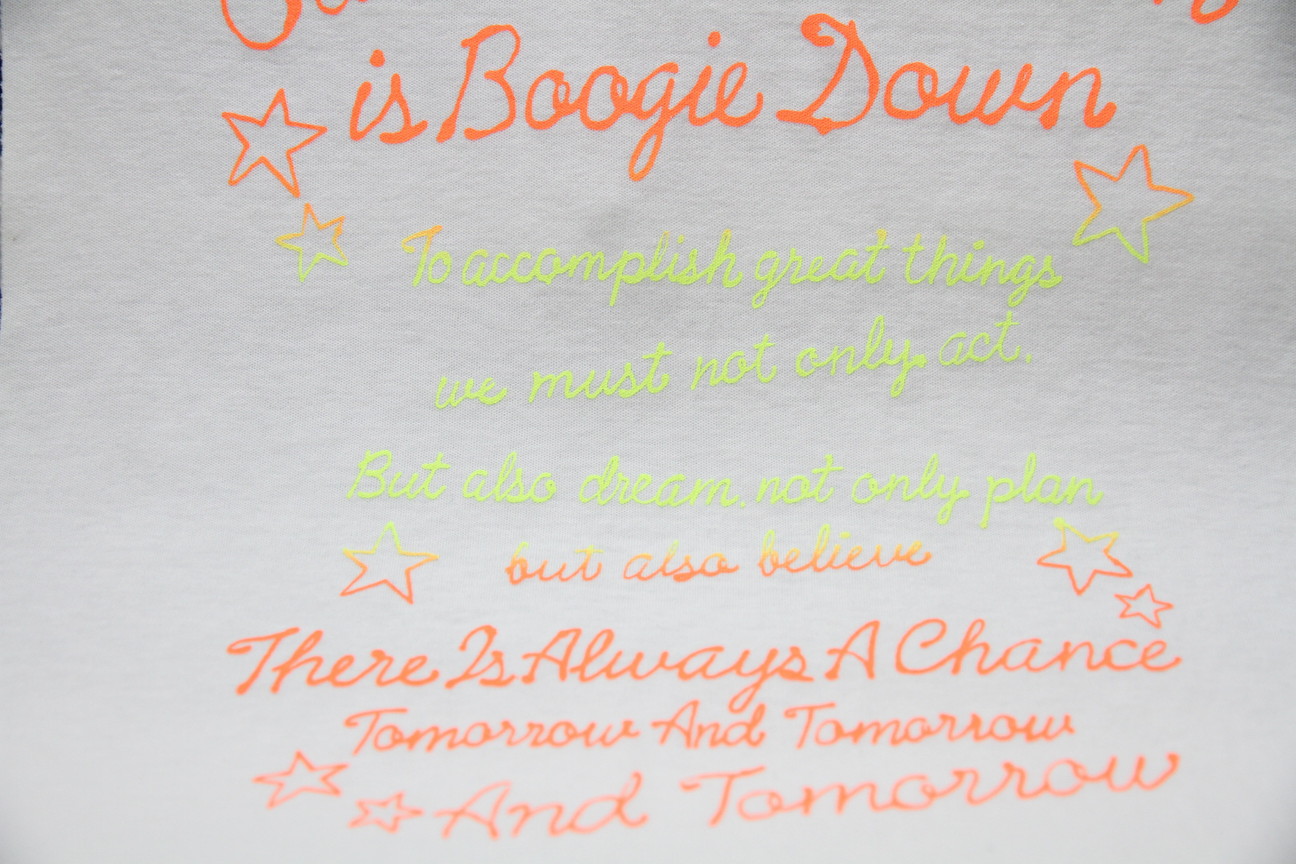 is Boogie Down
To accomplish great things
we must not only act.
But also dream. not only plan
but also believe
There Is Always A Chance
Tomorrow And Tomorrow
And Tomorrow